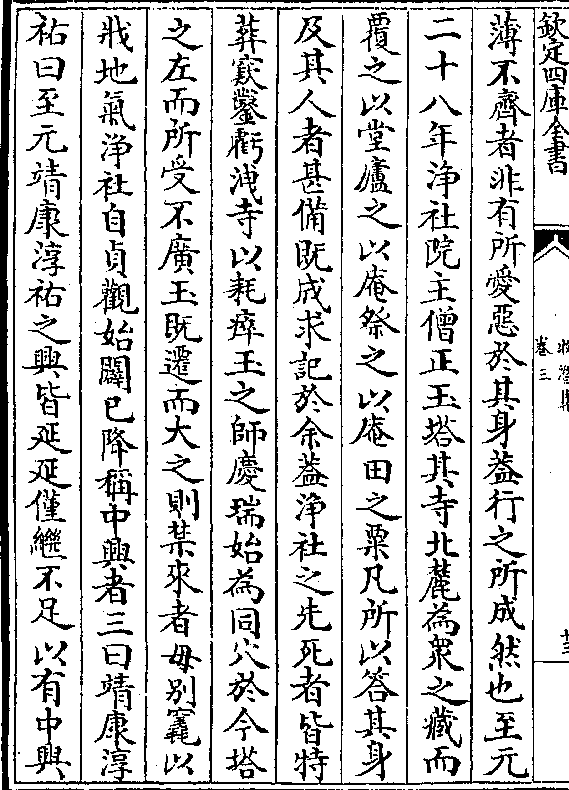 欽定四庫全書
卷三
薄不齊者非有所愛惡於其身葢行之所成然也至元
二十八年浄社院主僧正玉塔其寺北麓為衆之藏而
覆之以堂廬之以庵祭之以庵田之粟凡所以答其身
及其人者甚備既成求記於余葢浄社之先死者皆特
葬竅鑿虧洩寺以耗瘁玉之師慶瑞始為同穴於今塔
之左而所受不廣玉既遷而大之則某來者毋别竁以
戕地氣浄社自貞觀始闢已降稱中興者三曰靖康淳
祐曰至元靖康淳祐之興皆延延僅繼不足以有中興